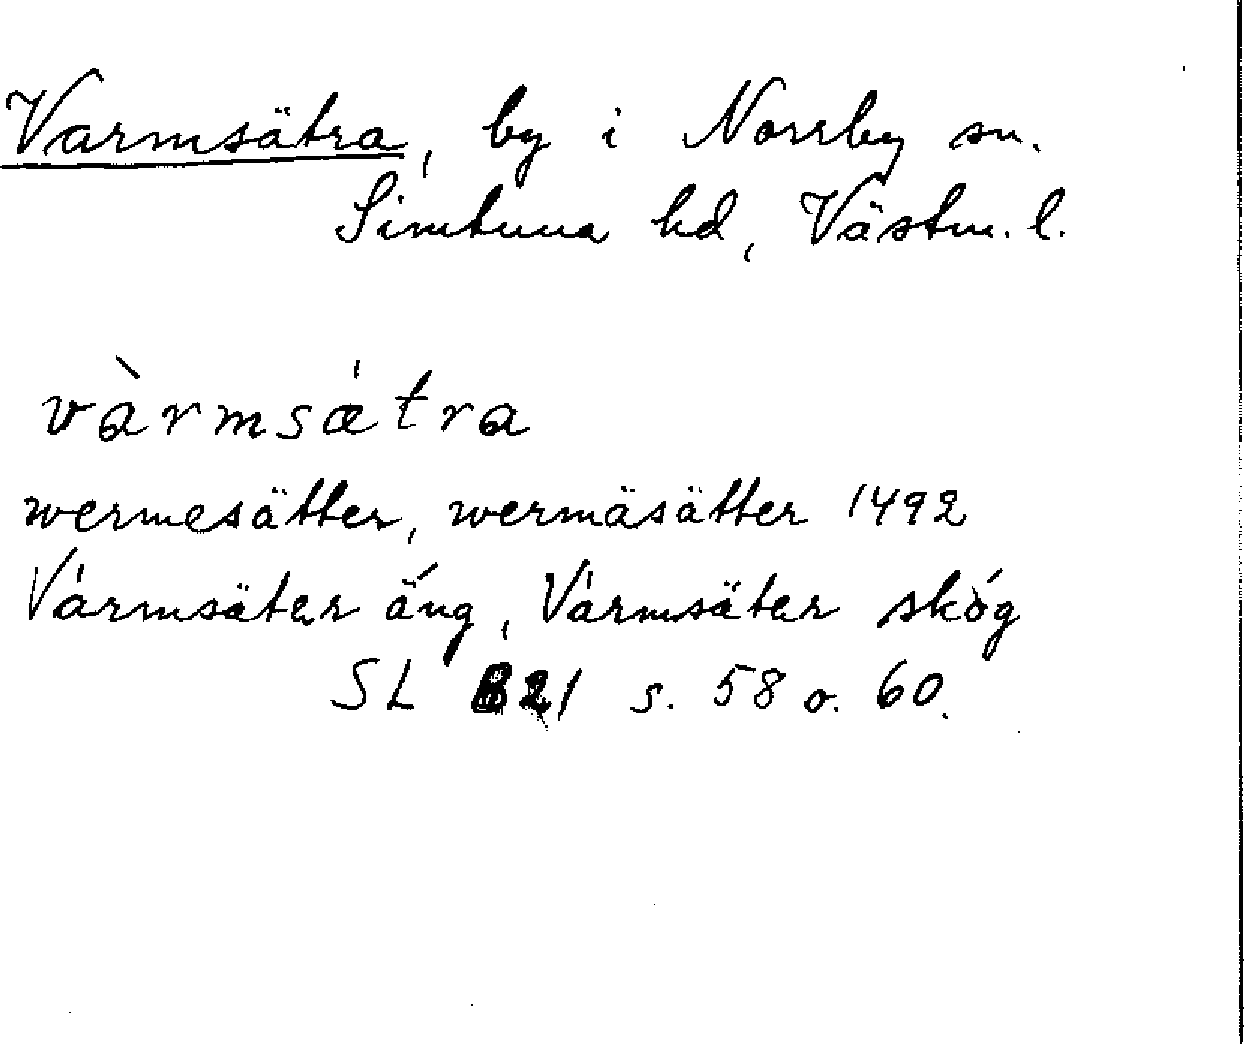 Varmsätra, by i Norrby sn.
Simtuna hd, Västm. l.
vàrmsǽtra
wermesätter, wermäsätter 1492
Vàrmsäter ä́ng, Vàrmsäter skóg
SL B21 s. 58 o. 60.